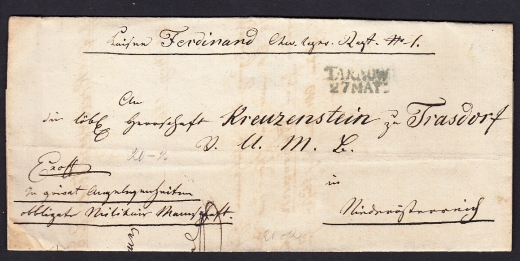 Kaiser Ferdinand Chev. legers Regt. No 1.
TARNOW
27 MAI
An
die löbl. Herrschaft Kreuzenstein zu Trasdorf
V. U. M. B.
Exoff
in
In privat Angelegenheiten
obligater Militair Mannschaft.
Niederösterreich